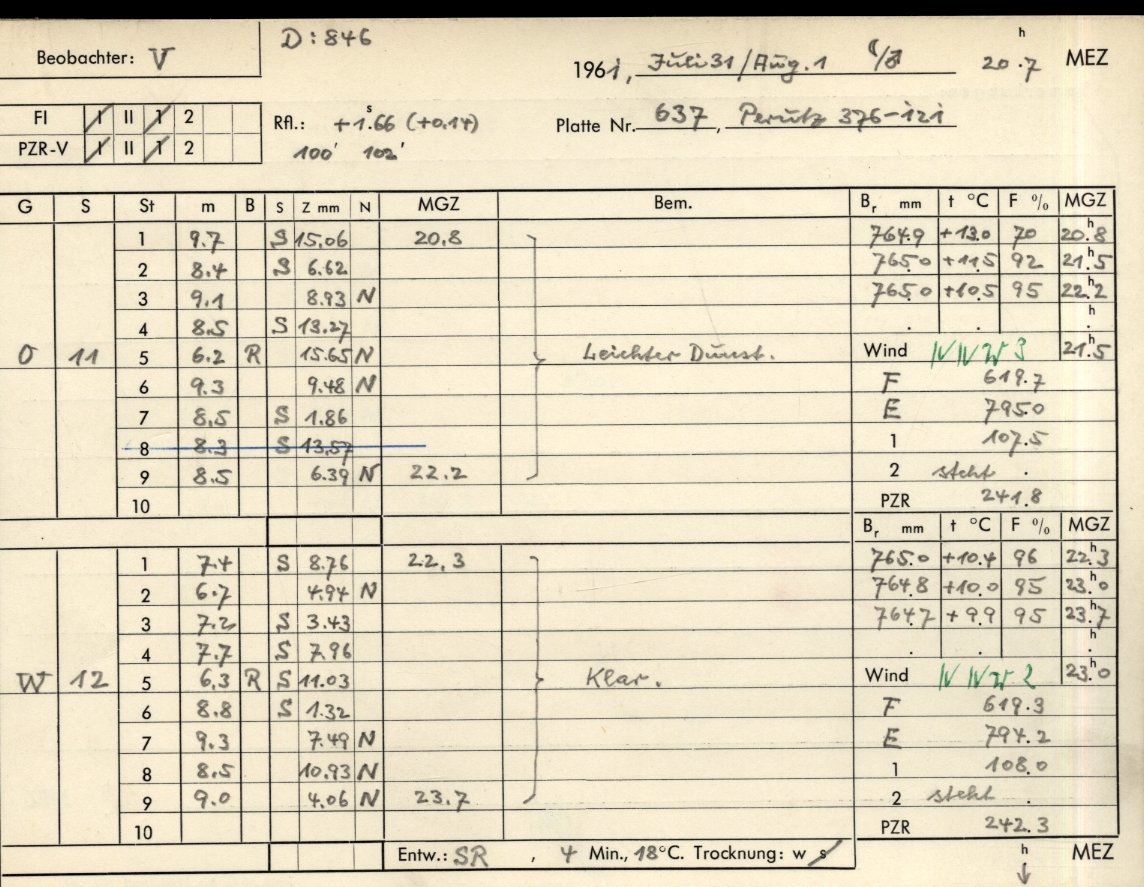 D: 846
Beobachter: V
1961, Juli 31/Aug. 1 ☾/♂ 20.7 h MEZ
FI I II 1 2
Rfl.: +1.66 s (+0.14)
Platte Nr. 637, Perutz 376-121
PZR-V I II 1 2
100' 102'
G S St m B S Z mm N MGZ Bem. Br mm t °C F % MGZ
1 9.7 S 15.06 20.8 764.9 +13.0 70 20.8 h
2 8.4 S 6.62 765.0 +11.5 92 21.5 h
3 9.1 8.93 N 765.0 +10.5 95 22.2 h
4 8.5 S 13.27 . . h .
O 11 5 6.2 R 15.65 N Leichter Dunst. Wind NNW 3 21.5 h
6 9.3 9.48 N F 619.7
7 8.5 S 1.86 E 795.0
8 8.3 S 13.57 1 107.5
9 8.5 6.39 N 22.2 2 steht .
10 PZR 241.8
Br mm t °C F % MGZ
1 7.4 S 8.76 22.3 765.0 +10.4 96 22.3 h
2 6.7 4.94 N 764.8 +10.0 95 23.0 h
3 7.2 S 3.43 764.7 +9.9 95 23.7 h
4 7.7 S 7.96 . . h .
W 12 5 6.3 R S 11.03 Klar. Wind NNW 2 23.0 h
6 8.8 S 1.32 F 619.3
7 9.3 7.49 N E 794.2
8 8.5 10.93 N 1 108.0
9 9.0 4.06 N 23.7 2 steht .
10 PZR 242.3
Entw.: SR , 4 Min., 18°C. Trocknung: w s h MEZ